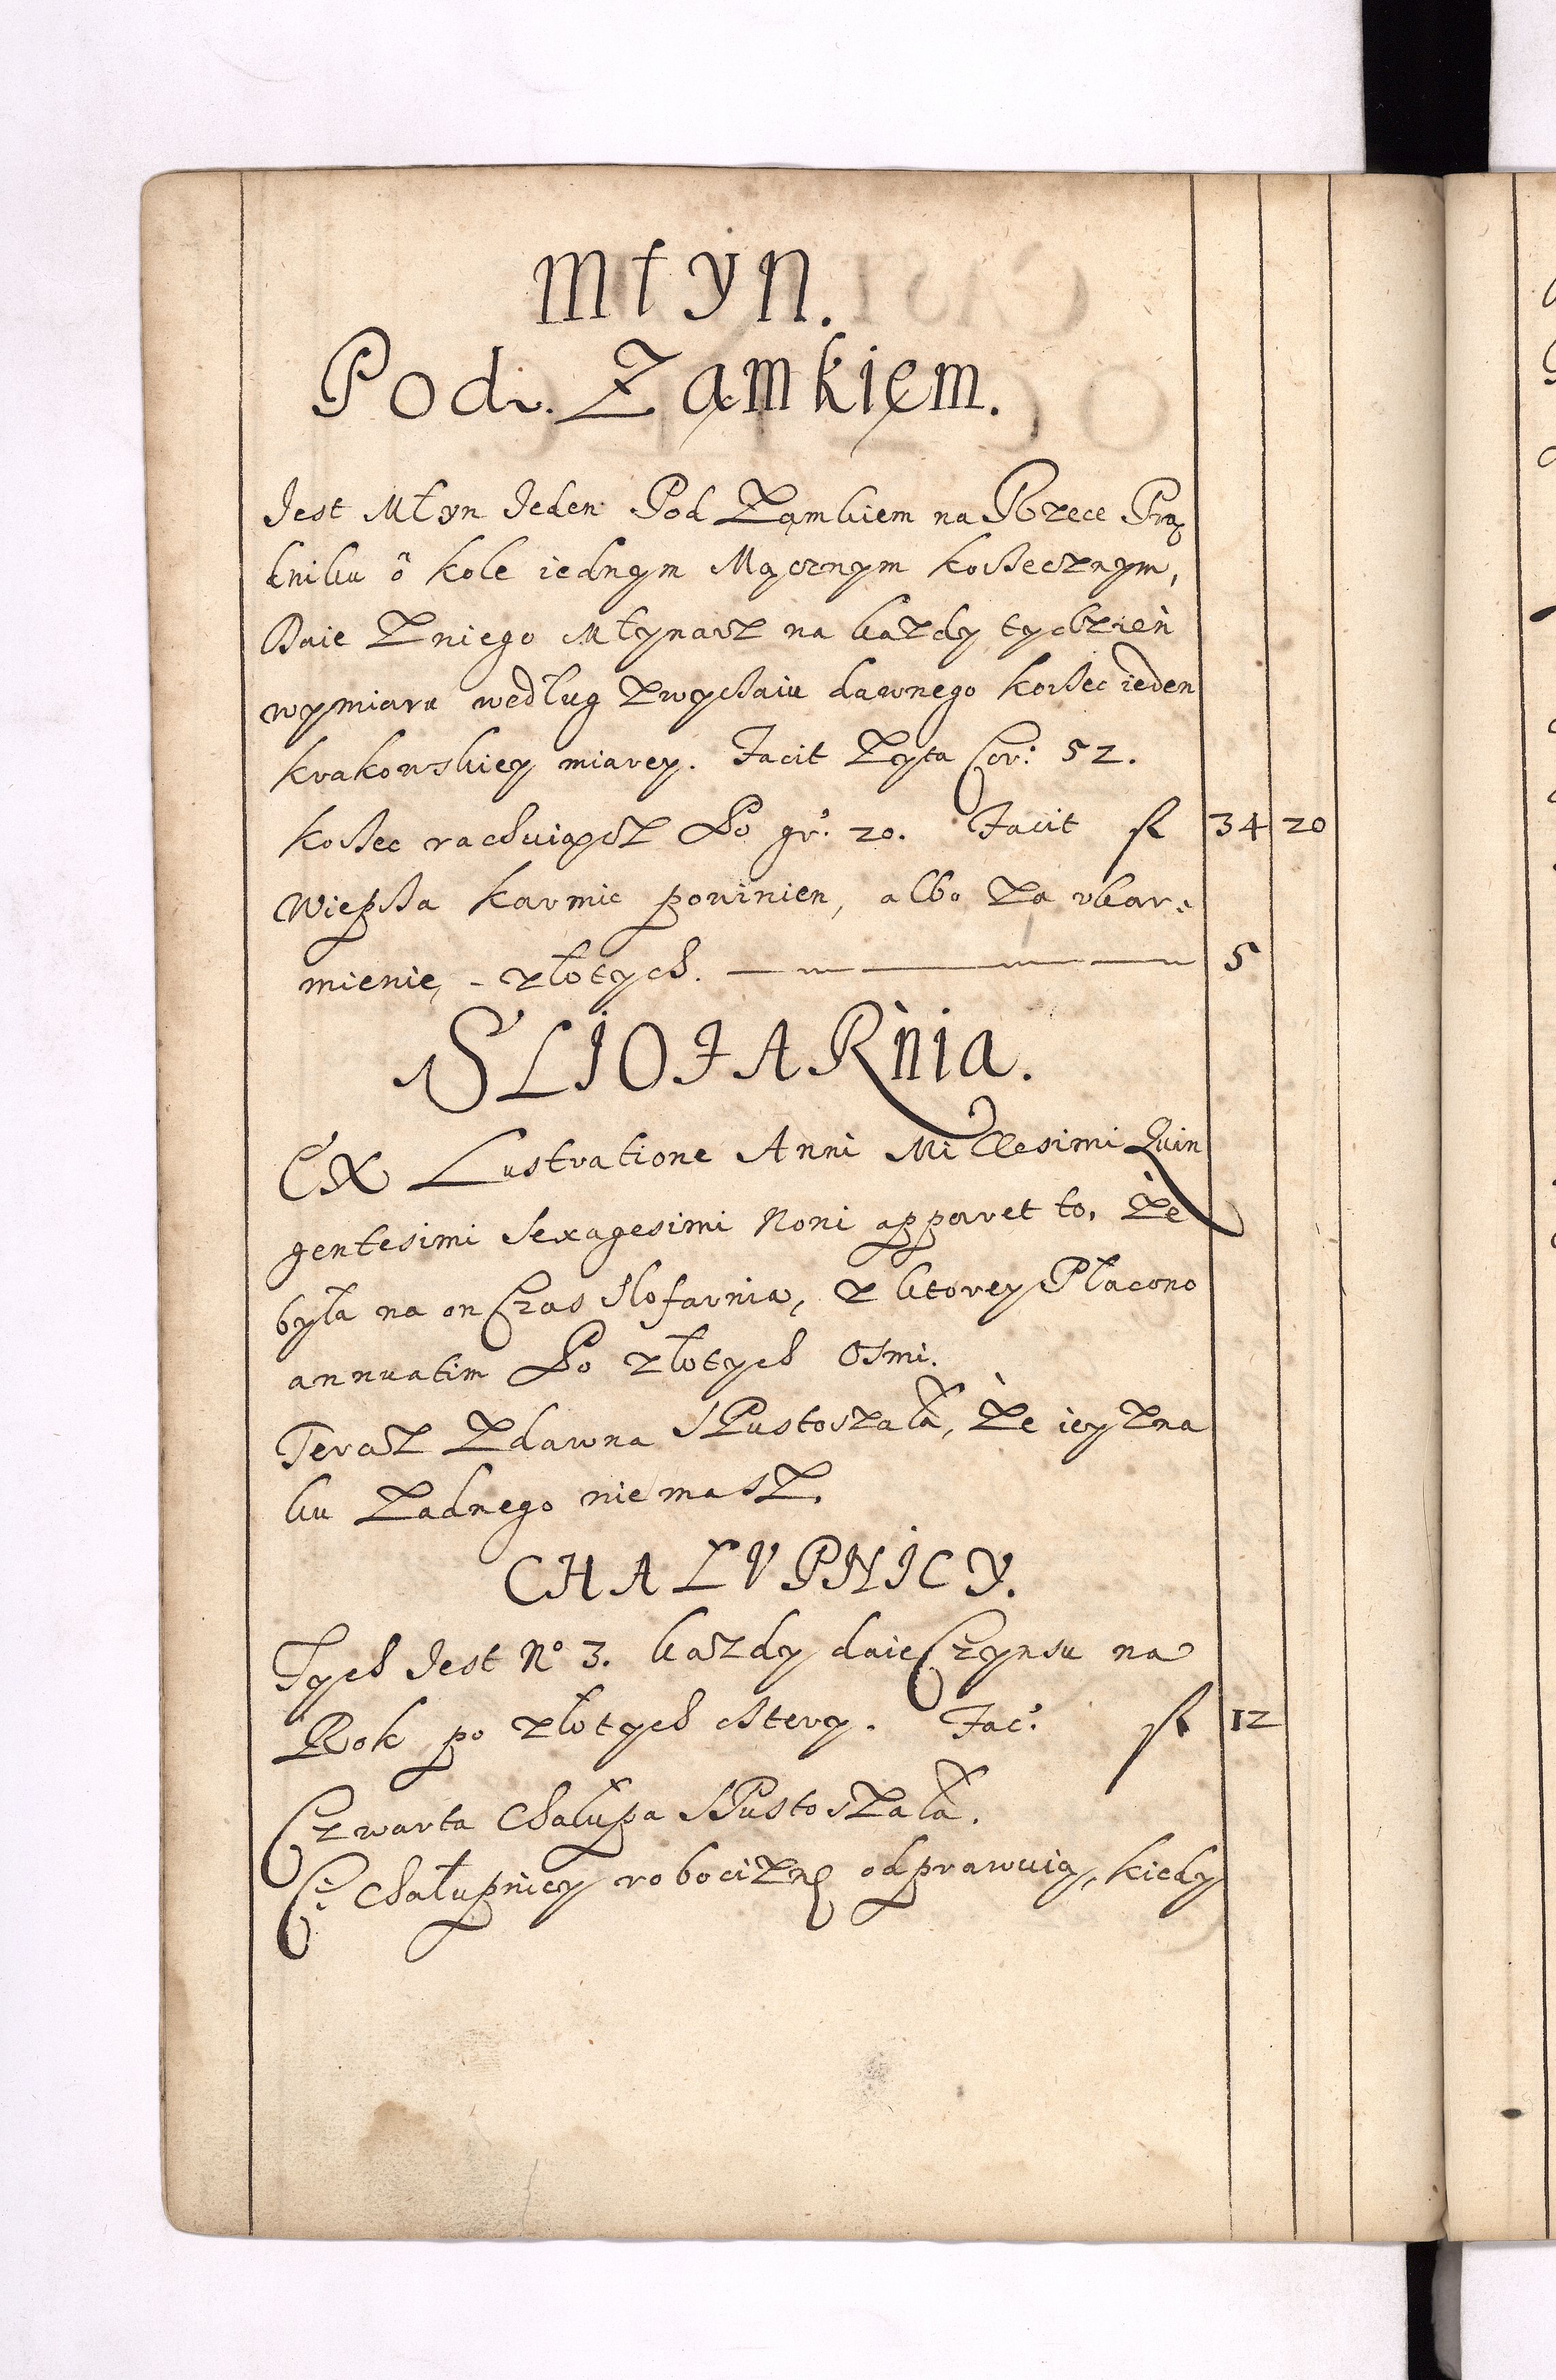 Młyn.
Pod. Ząmkięm.
Jest Młyn Jeden Pod Ząmkiem na Rzece Prą
dniku o kole iednym Mącznym korzecznym,
Daie Zniego Młynarz na każdy tydzień
wymiaru według Zwyczaiu dawnego korzec ieden
krakowskiey miarey. Facit Żyta Cor: 52.
korzec rachuiącz Po gr: 20. Facit fl 34 20
Wieprza karmic powinien, albo Za vkar:
mienie, - złotych. 5
SLIOFARnia.
EX Lustratione Anni Millesimi Quin
gentesimi Sexagesimi Noni apparet to, że
była na on Czas Slofarnia, z ktorey Płacono
annuatim Po złotych Osmi.
Teraz Zdawna SPustoszała, że iey Zna
ku Żadnego nie masz.
CHAŁVPNICY.
Tych Jest No 3. każdy daie Czynsu na
Rok po złotych cztery. Fac: fl 12
Czwarta Chałupa SPustoszała.
Ci Chałupnicy robociznę odprawuią, kiedy